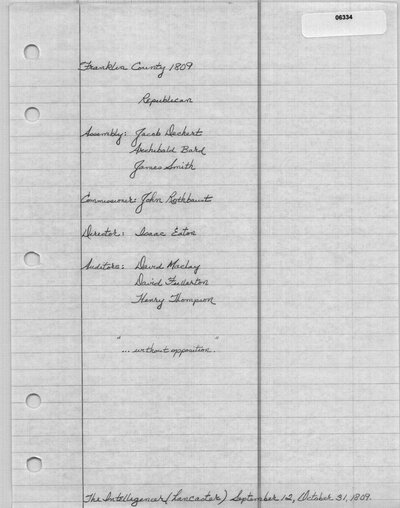 06334
Franklin County 1809
Republican
Assembly: Jacob Dechert
Archibald Bard
James Smith
Commissioner: John Rothbaust
Director: Isaac Eaton
Auditors: David Maclay
David Fullerton
Henry Thompson
"... without opposition."
The Intelligencer (Lancaster) September 12, October 31, 1809.